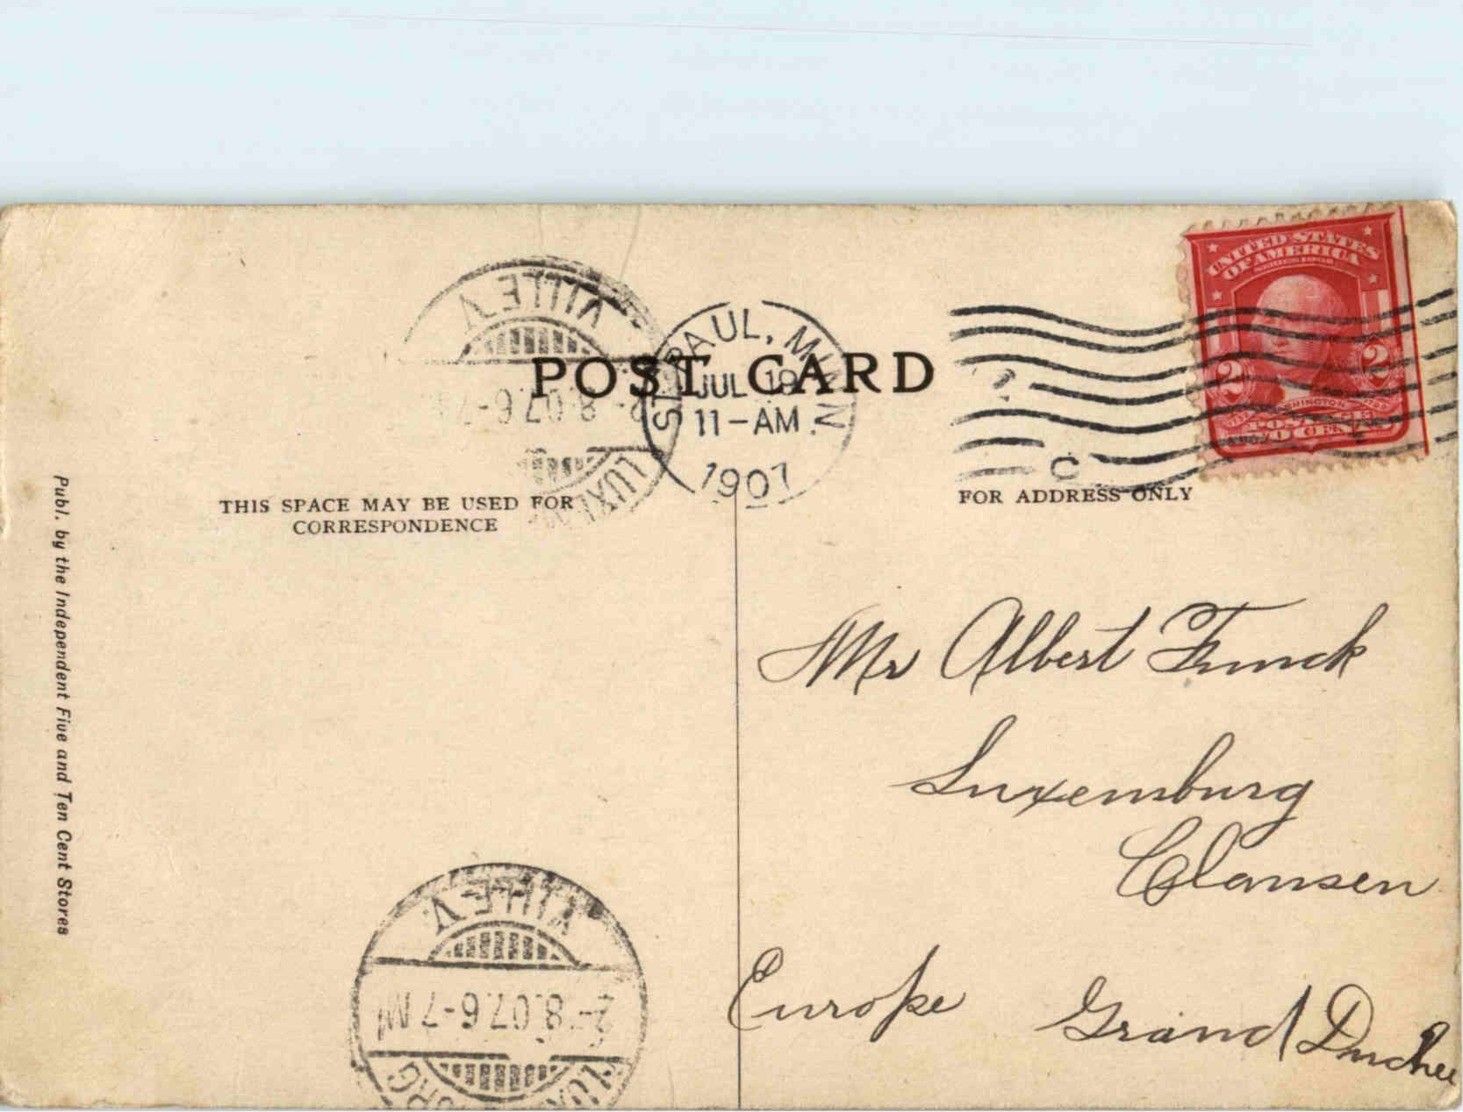 POST CARD
ST. PAUL, MINN.
JUL 19
11-AM
1907
C
UNITED STATES
OF AMERICA
2 2
WASHINGTON
POSTAGE
VILLE V.
2-8.07.6-7
LUXEM
THIS SPACE MAY BE USED FOR
CORRESPONDENCE
FOR ADDRESS ONLY
Mr Albert Funck
Luxemburg
Clausen
Europe Grand Duchee
Publ. by the Independent Five and Ten Cent Stores
VILLE V.
2-8.07.6-7 M
LUXEMBURG